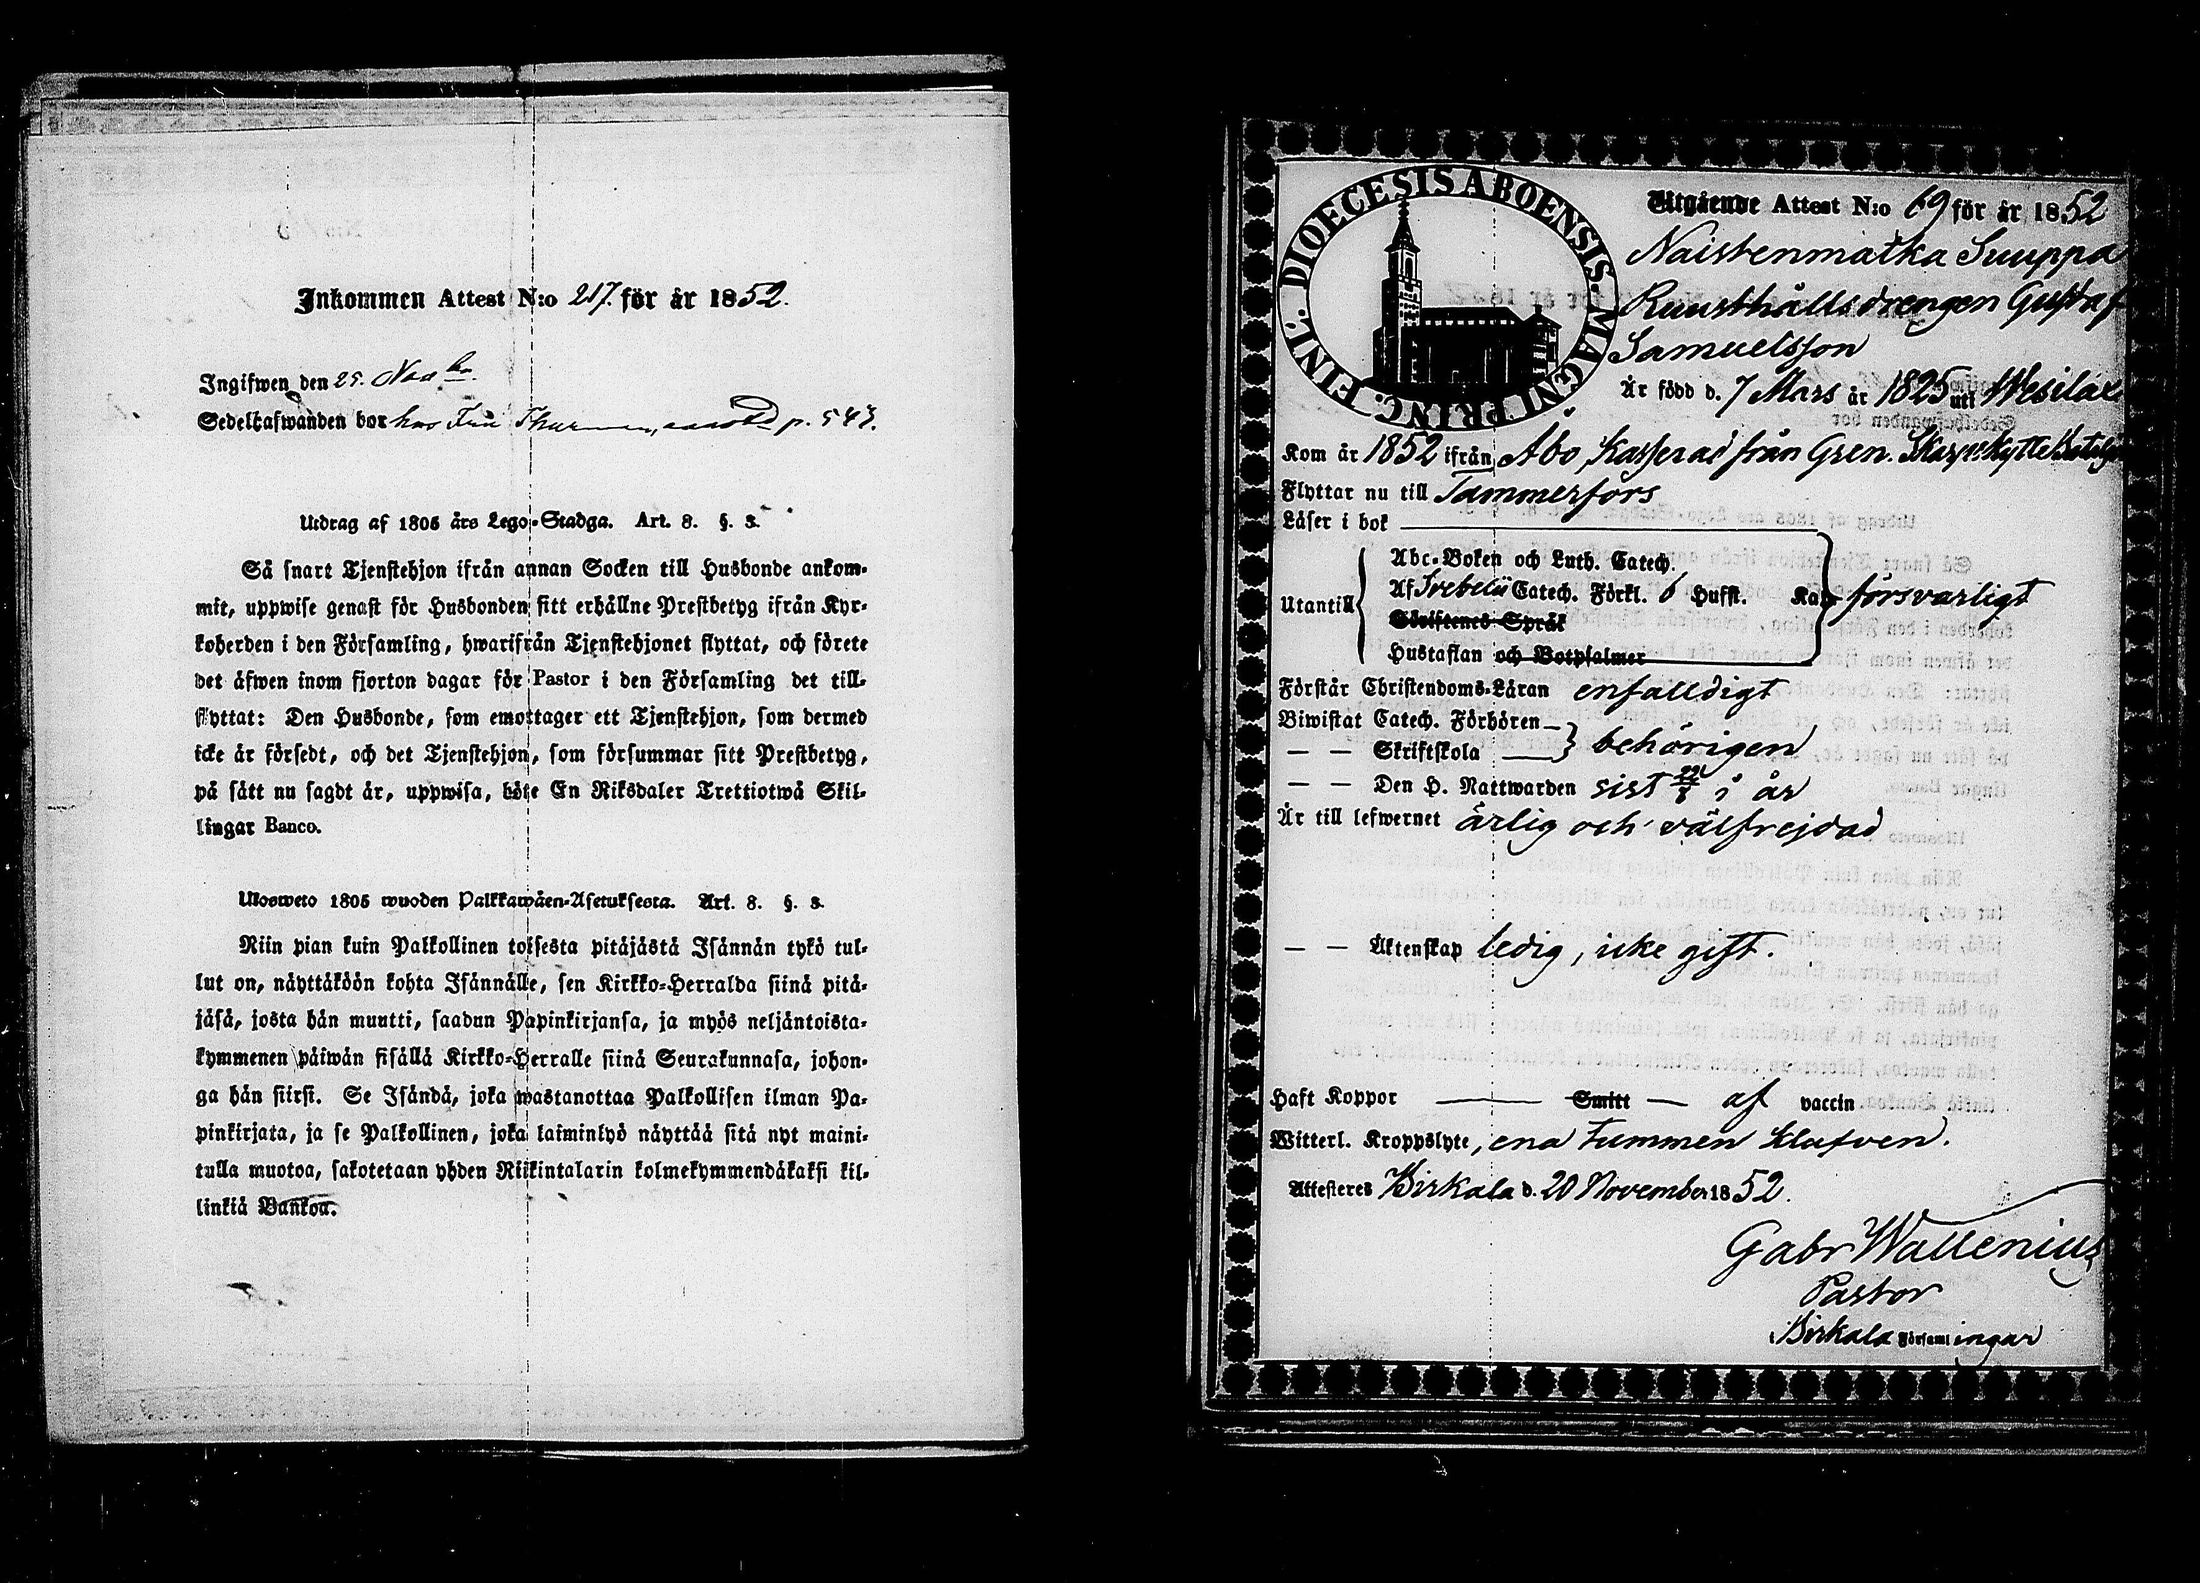 Inkommen Attest N:o 217. för år 1852.
Ingifwen den 25. Nov br.
Sedelhafwanden bor hos Fru p. 543.
Utdrag af 1805 års Lego-Stadga. Art. 8. §. 3.
Så snart Tjenstehjon ifrån annan Socken till Husbonde ankom-
mit, uppwise genast för Husbonden sitt erhållne Prestbetyg ifrån Kyr-
koherden i den Församling, hwarifrån Tjenstehjonet flyttat, och förete
det äfwen inom fjorton dagar för Pastor i den Församling det till-
flyttat: Den Husbonde, som emottager ett Tjenstehjon, som dermed
icke är försedt, och det Tjenstehjon, som försummar sitt Prestbetyg,
på sätt nu sagdt är, uppwisa, böte En Riksdaler Trettiotwå Skil-
lingar Banco.
Ulosweto 1805 wuoden Palkkawäen-Asetuksesta. Art. 8. §. 3.
Niin pian kuin Palkollinen toisesta pitäjästä Isännän tykö tul-
lut on, näyttäköön kohta Isännälle, sen Kirkko-Herralda siinä pitä-
jäsä, josta hän muutti, saadun Papinkirjansa, ja myös neljäntoista-
kymmenen päiwän sisällä Kirkko-Herralle siinä Seurakunnasa, johon-
ga hän siirsi. Se Isändä, joka wastanottaa Palkollisen ilman Pa-
pinkirjata, ja se Palkollinen, joka laiminlyö näyttää sitä nyt maini-
tulla muotoa, sakotetaan yhden Riikintalarin kolmekymmendäkaksi kil-
linkiä Bankoa.
DIOECESIS ABOENSIS. MAGNI PRINC. FINL.
Utgående Attest N:o 69 för år 1852
Naistenmatka Suuppa
Rusthållsdrengen Gustaf
Samuelsson
Är född d. 7 Mars år 1825 uti Wesilax
Kom år 1852 ifrån Åbo, Kasserad från Gren. Skarpskytte Batalj
Flyttar nu till Tammerfors
Läser i bok
Utantill
Abc-Boken och Luth. Catech.
Af Svebelii Catech. Förkl. 6 Hufst. Kap försvarligt
Skriftenes Språk
Hustaflan och Botpsalmer
Förstår Christendoms-Läran enfalldigt
Biwistat Catech. Förhören
— — Skriftskola behörigen
— — Den H. Nattwarden sist 22/8 i år
Är till lefwernet ärlig och välfrejdad
— — Äktenskap ledig, icke gift.
Haft Koppor — Smitt — af vaccin
Witterl. Kroppslyte, ena tummen klufven.
Attesteres Birkala d. 20 November 1852.
Gabr Wallenius
Pastor
i Birkala Församlingar